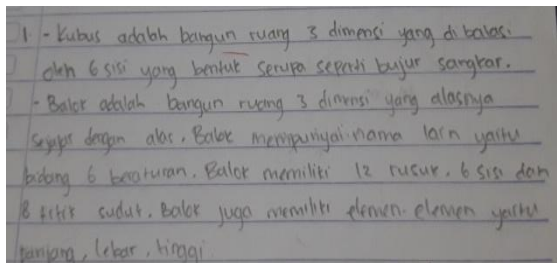 1. - Kubus adalah bangun ruang 3 dimensi yang dibatasi
oleh 6 sisi yang bentuk serupa seperti bujur sangkar.
- Balok adalah bangun ruang 3 dimensi yang alasnya
sejajar dengan alas. Balok mempunyai nama lain yaitu
bidang 6 beraturan. Balok memiliki 12 rusuk, 6 sisi dan
8 titik sudut. Balok juga memiliki elemen-elemen yaitu
panjang, lebar, tinggi